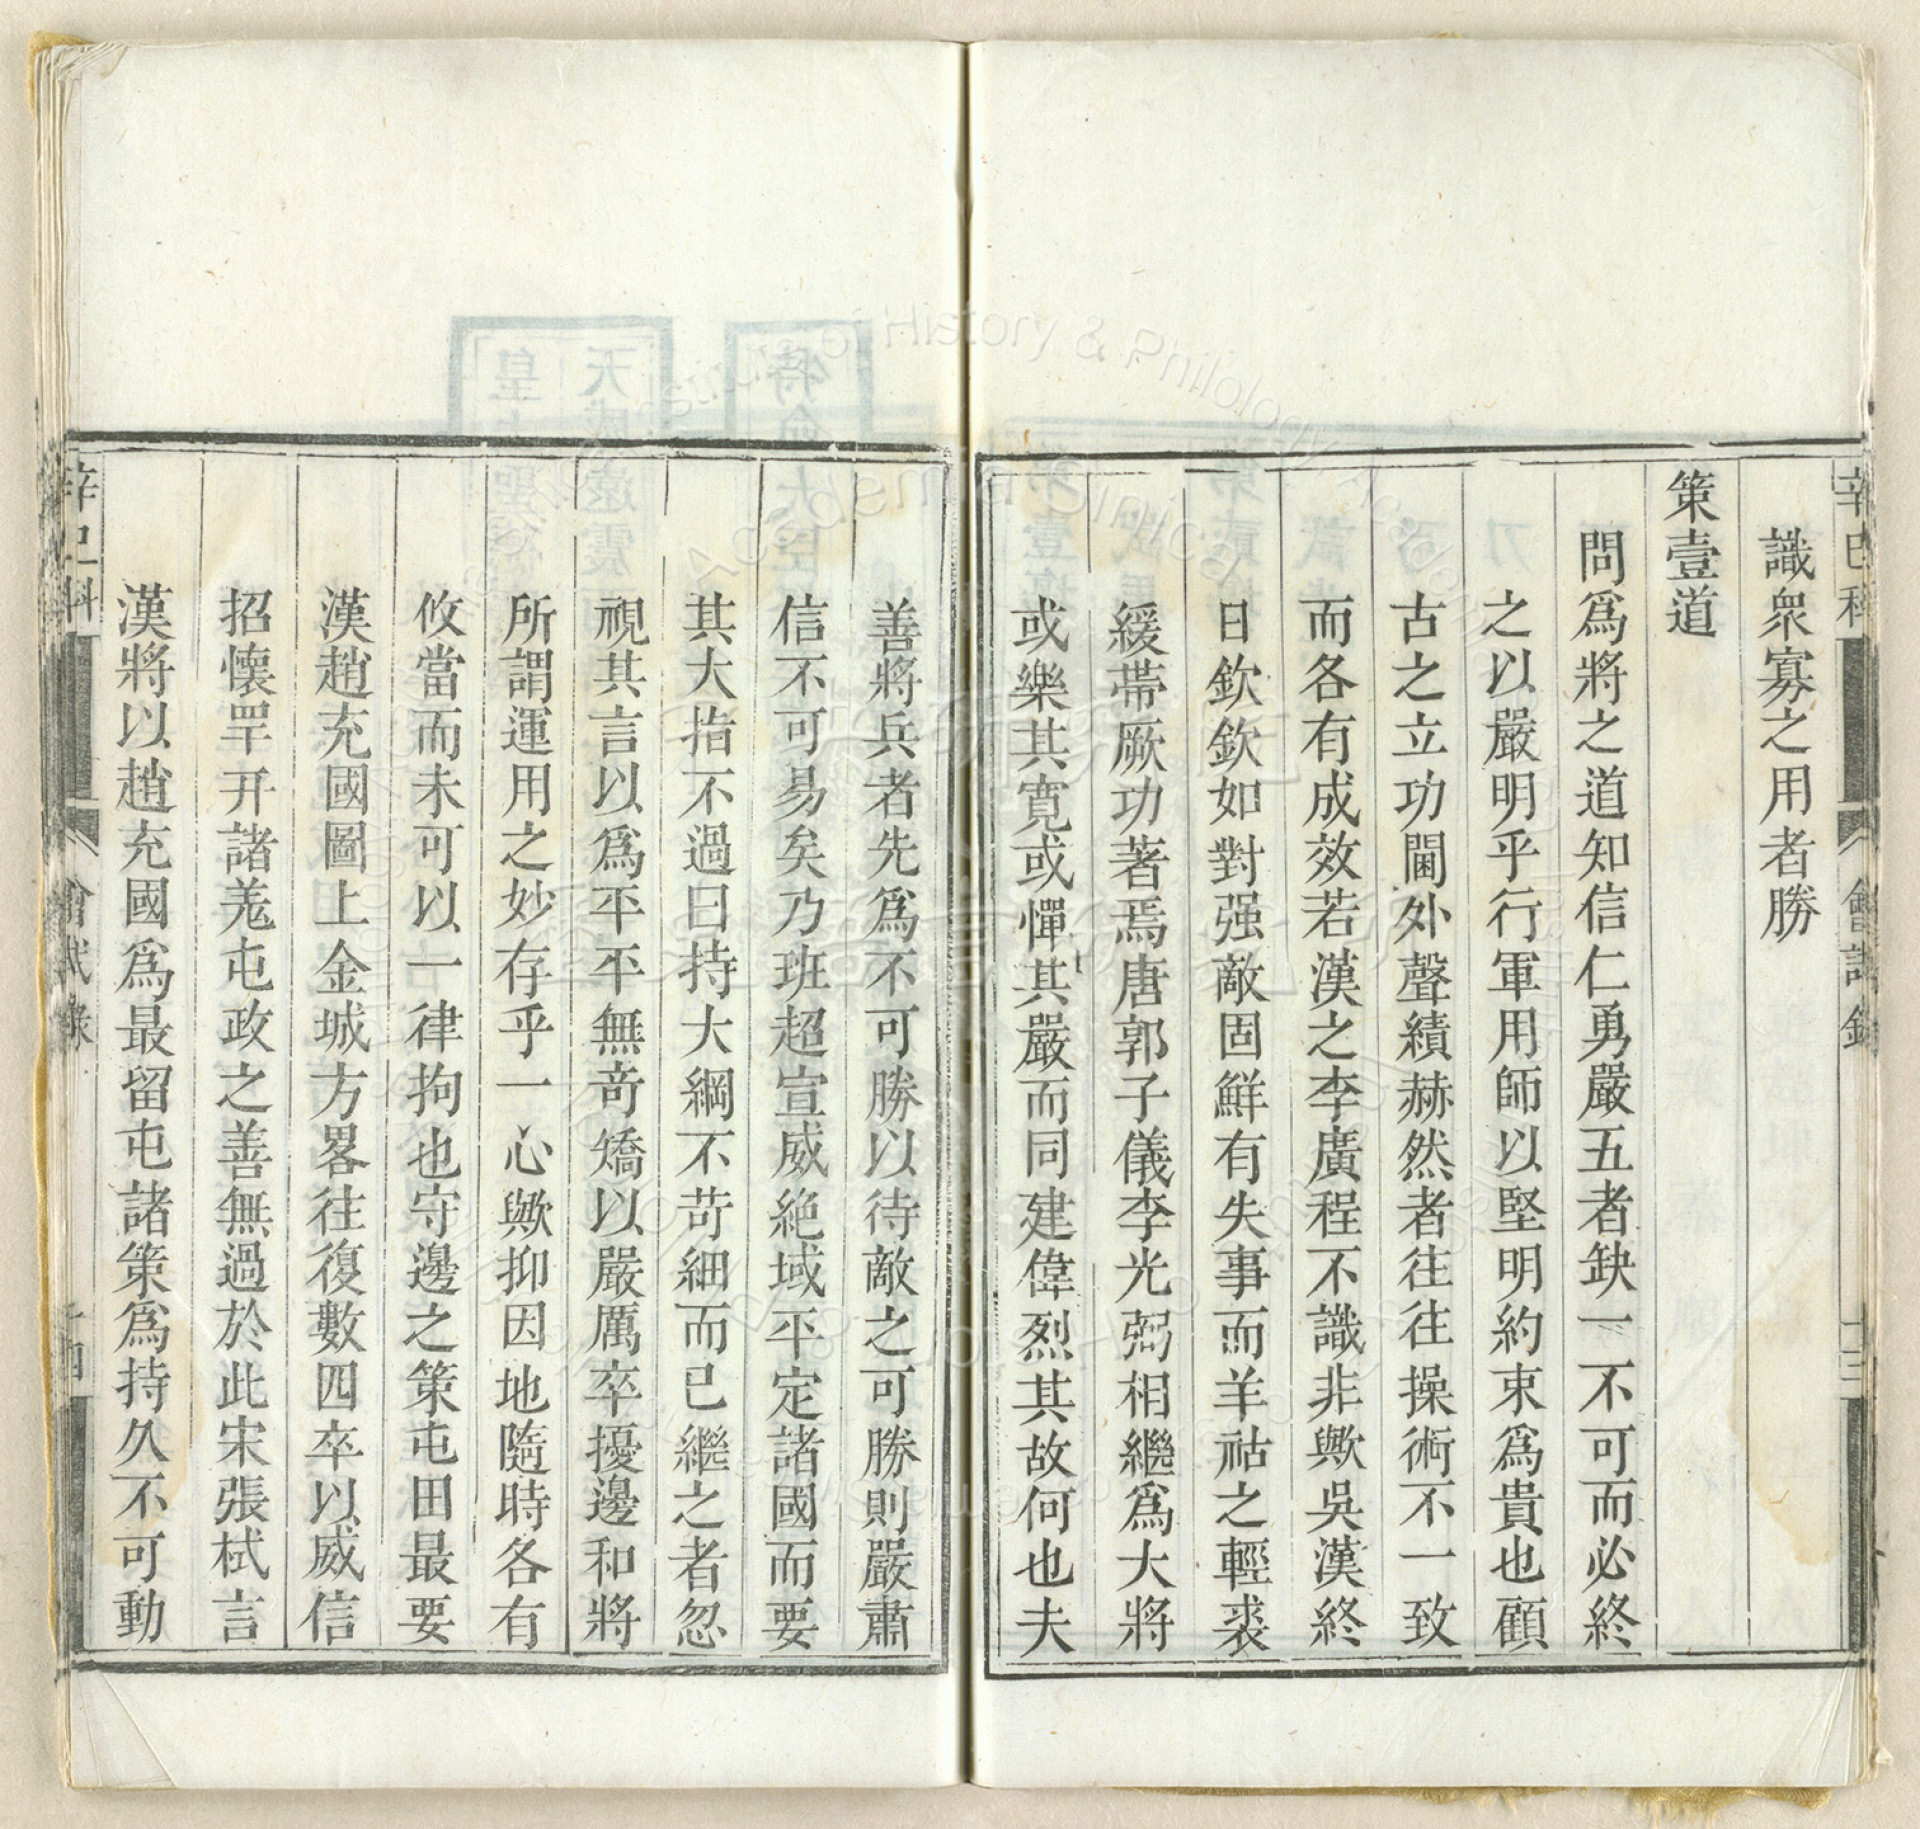 辛巳科 會試錄 十三
識衆寡之用者勝
策壹道
問爲將之道知信仁勇嚴五者缺一不可而必終
之以嚴明乎行軍用師以堅明約束爲貴也顧
古之立功閫外聲績赫然者往往操術不一致
而各有成效若漢之李廣程不識非歟吳漢終
日欽欽如對强敵固鮮有失事而羊祜之輕裘
緩帶厥功著焉唐郭子儀李光弼相繼爲大將
或樂其寛或憚其嚴而同建偉烈其故何也夫
善將兵者先爲不可勝以待敵之可勝則嚴肅
信不可易矣乃班超宣威絶域平定諸國而要
其大指不過曰持大綱不苛細而已繼之者忽
視其言以爲平平無奇矯以嚴厲卒擾邊和將
所謂運用之妙存乎一心歟抑因地隨時各有
攸當而未可以一律拘也守邊之策屯田最要
漢趙充國圖上金城方畧往復數四卒以威信
招懷罕幵諸羗屯政之善無過於此宋張栻言
漢將以趙充國爲最留屯諸策爲持久不可動
辛巳科 會試錄 十四